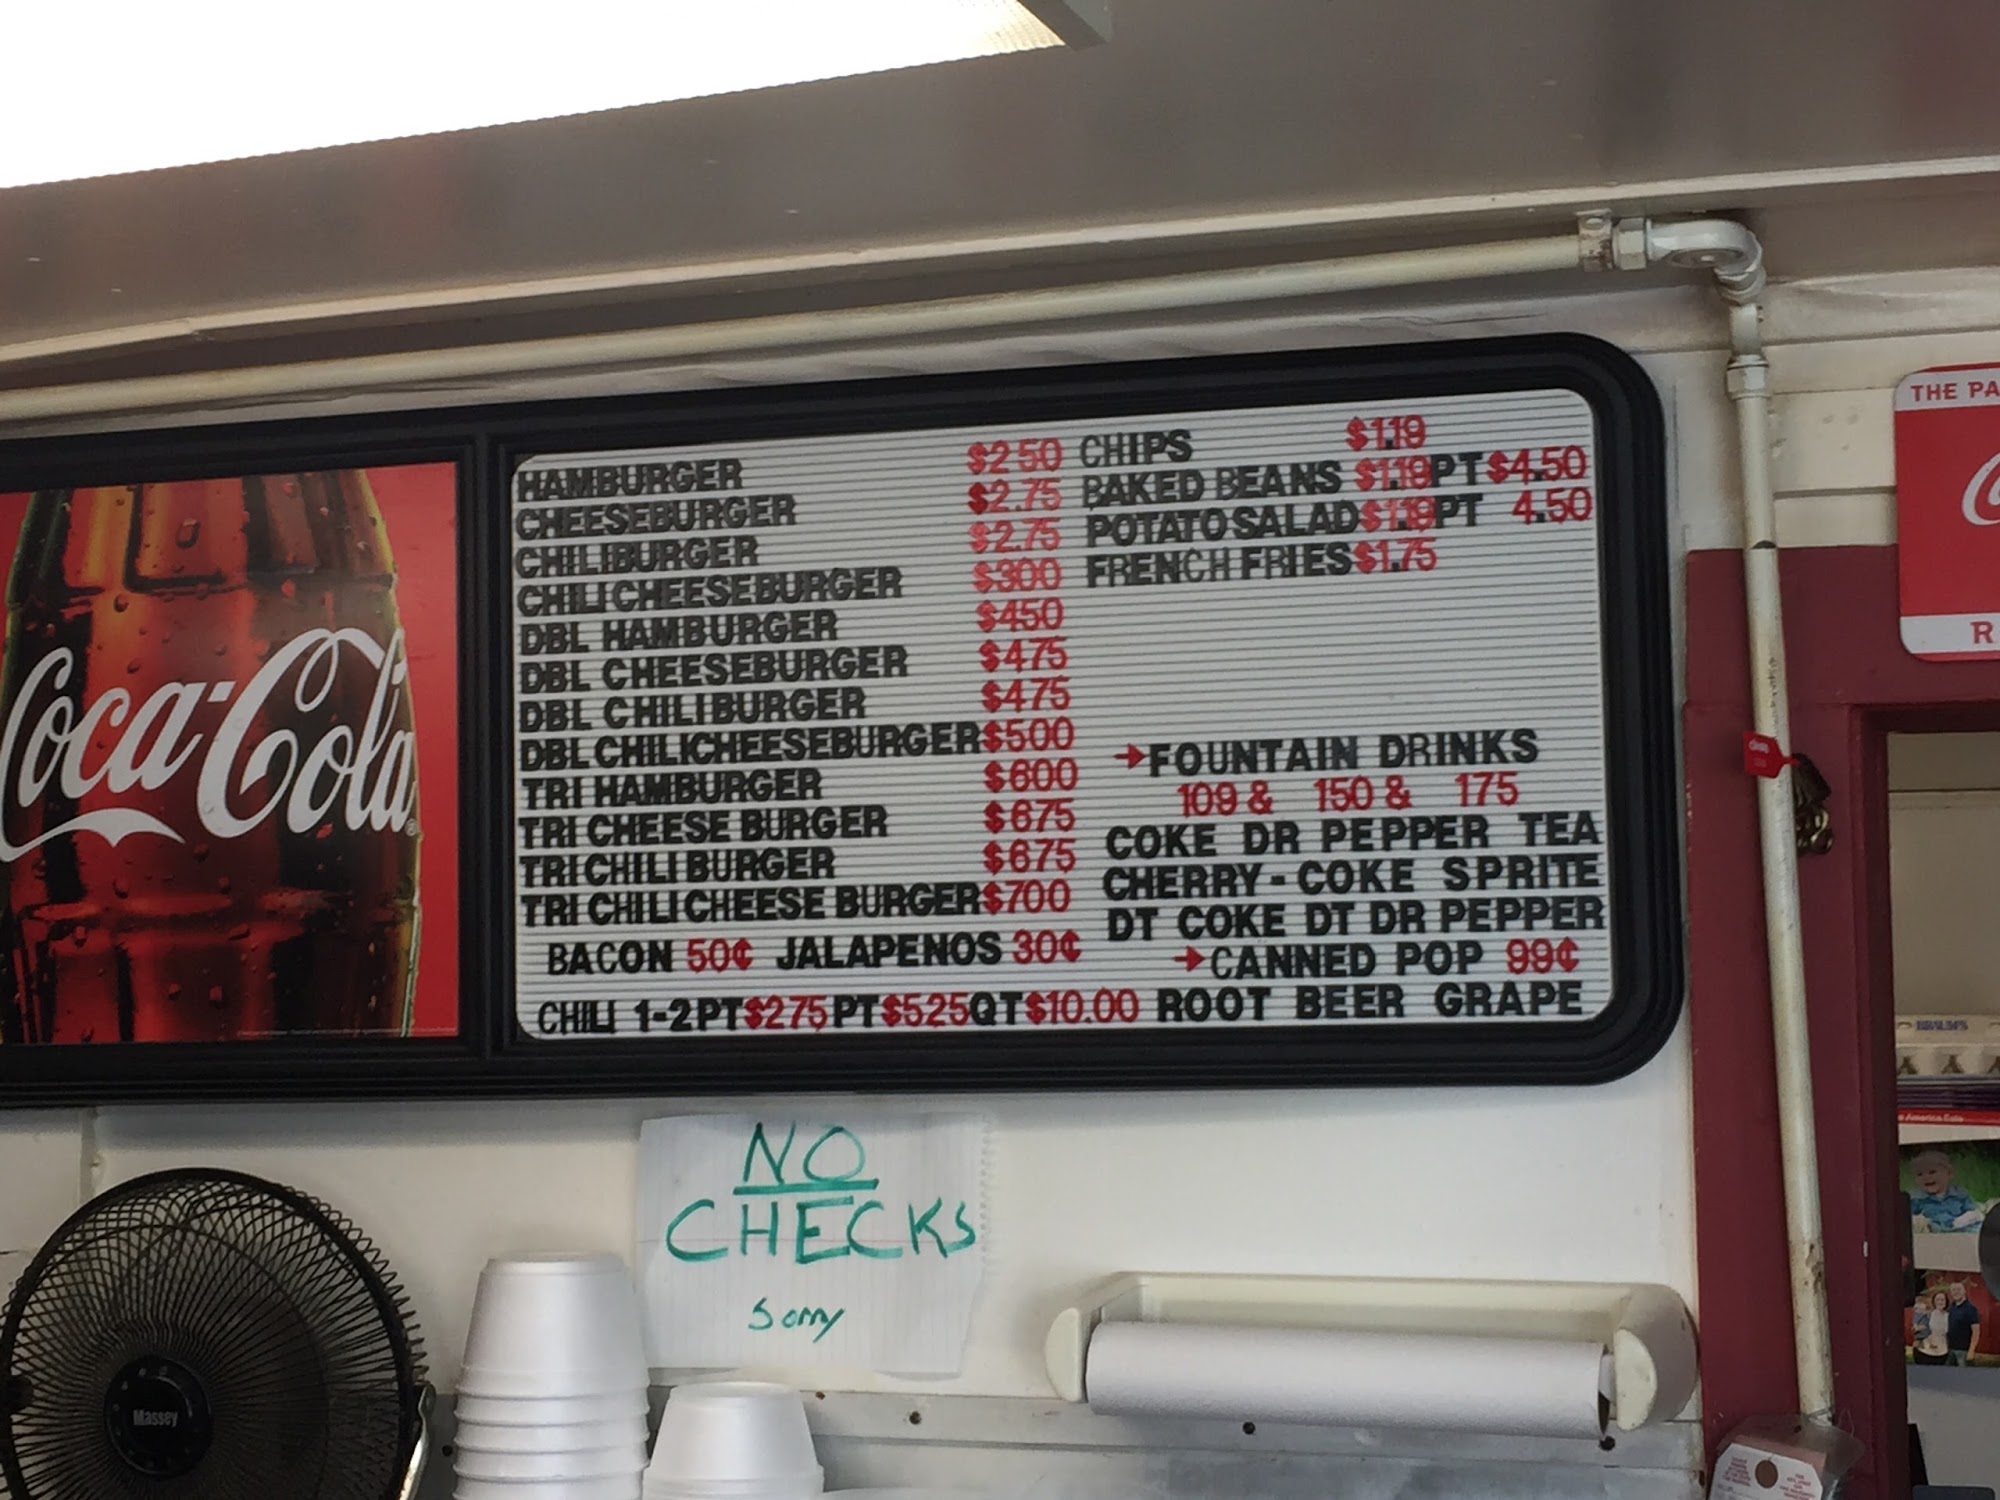 HAMBURGER $2 50
CHEESEBURGER $2.75
CHILIBURGER $2.75
CHILICHEESEBURGER $300
DBL HAMBURGER $450
DBL CHEESEBURGER $475
DBL CHILIBURGER $475
DBL CHILICHEESEBURGER $500
TRI HAMBURGER $600
TRI CHEESE BURGER $675
TRI CHILI BURGER $675
TRI CHILI CHEESE BURGER $700
BACON 50¢ JALAPENOS 30¢
CHILI 1-2PT $275 PT $525 QT $10.00
CHIPS $1.19
BAKED BEANS $1.19 PT $4.50
POTATO SALAD $1.19 PT 4.50
FRENCH FRIES $1.75
→FOUNTAIN DRINKS
109 & 150 & 175
COKE DR PEPPER TEA
CHERRY-COKE SPRITE
DT COKE DT DR PEPPER
→CANNED POP 99¢
ROOT BEER GRAPE
Coca-Cola
THE PA
R
NO
CHECKS
Sorry
Massey